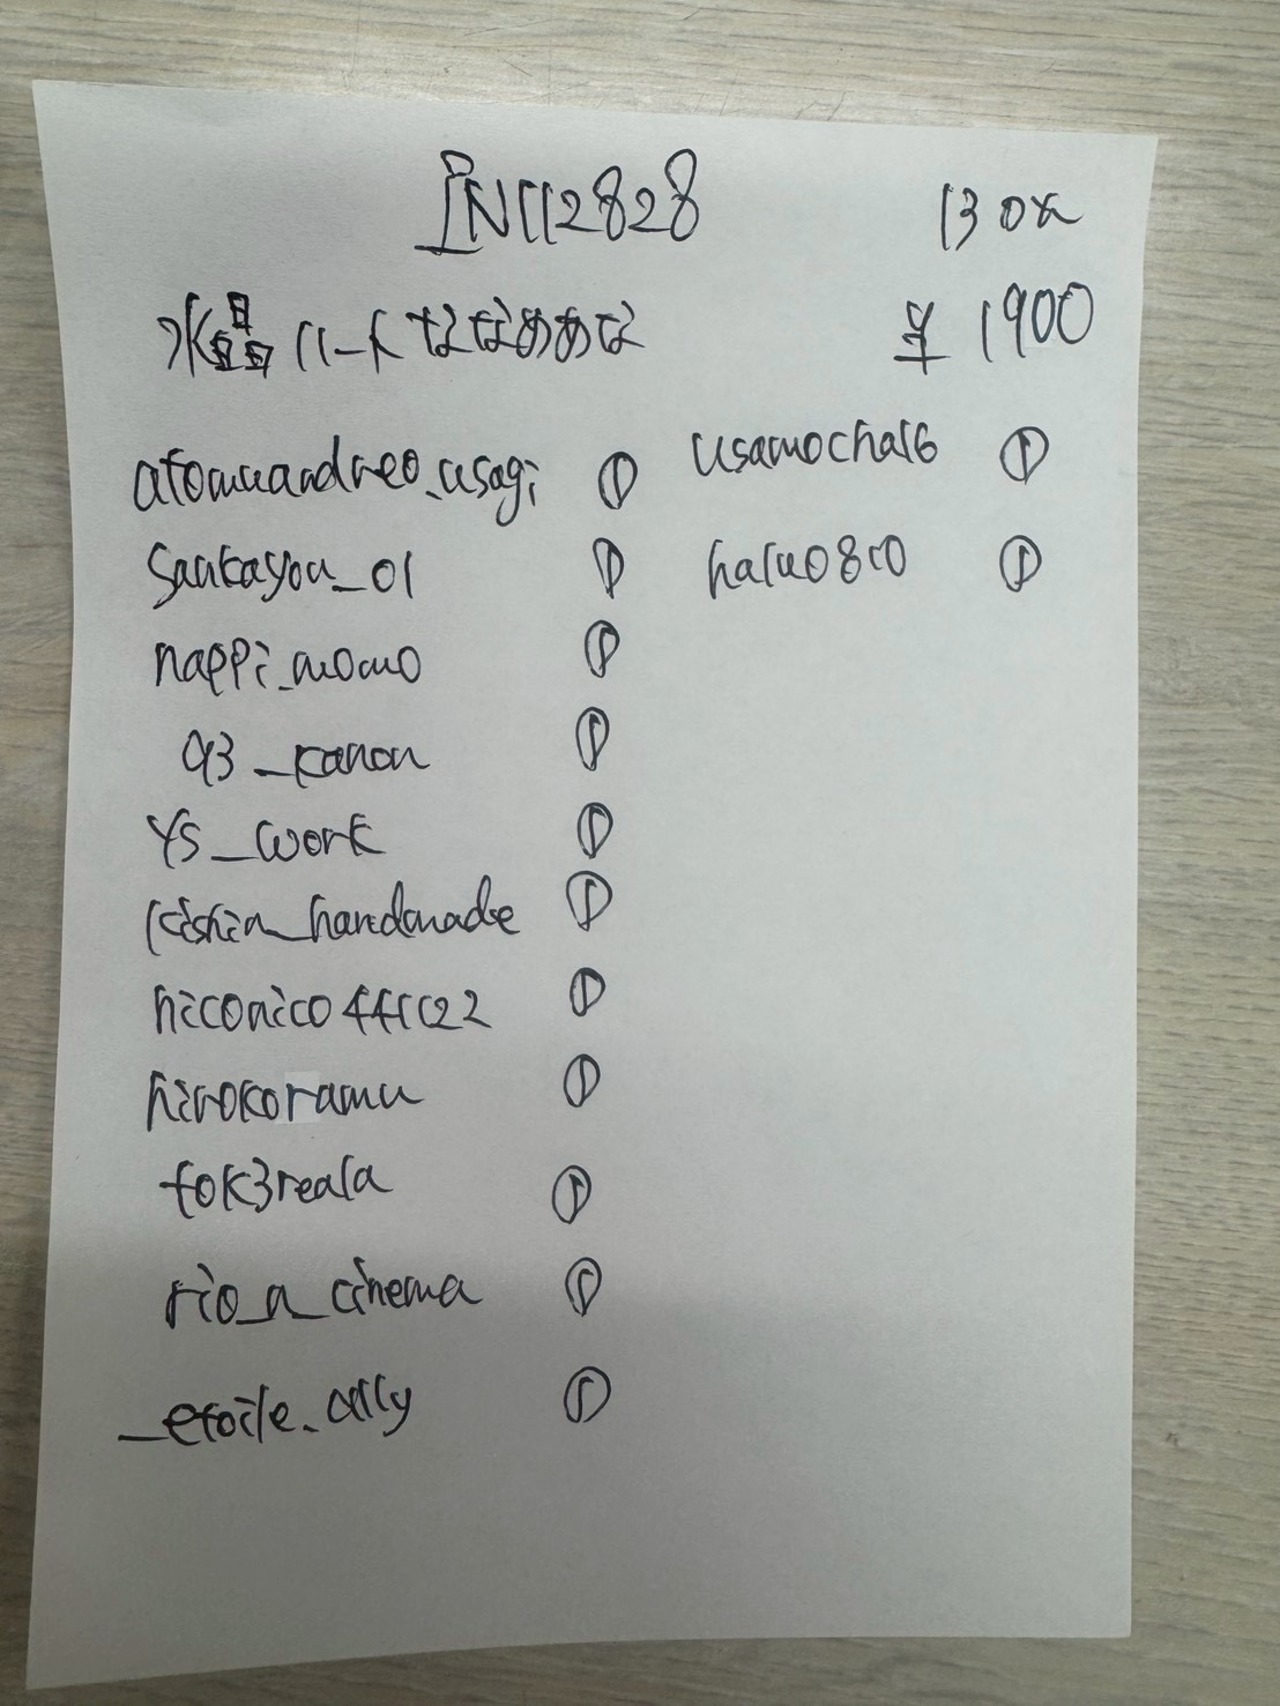 INC112828
130x
水晶ハートななめあな
¥1900
atomuandneo.usagi ①
sankayou_01 ①
nappi_momo ①
93_kanon ①
ys_work ①
kishin_handmade ①
niconico441122 ①
hirokoramu ①
tok3reala ①
rio_n_cinema ①
_etoile.ally ①
usamocha16 ①
halu0810 ①